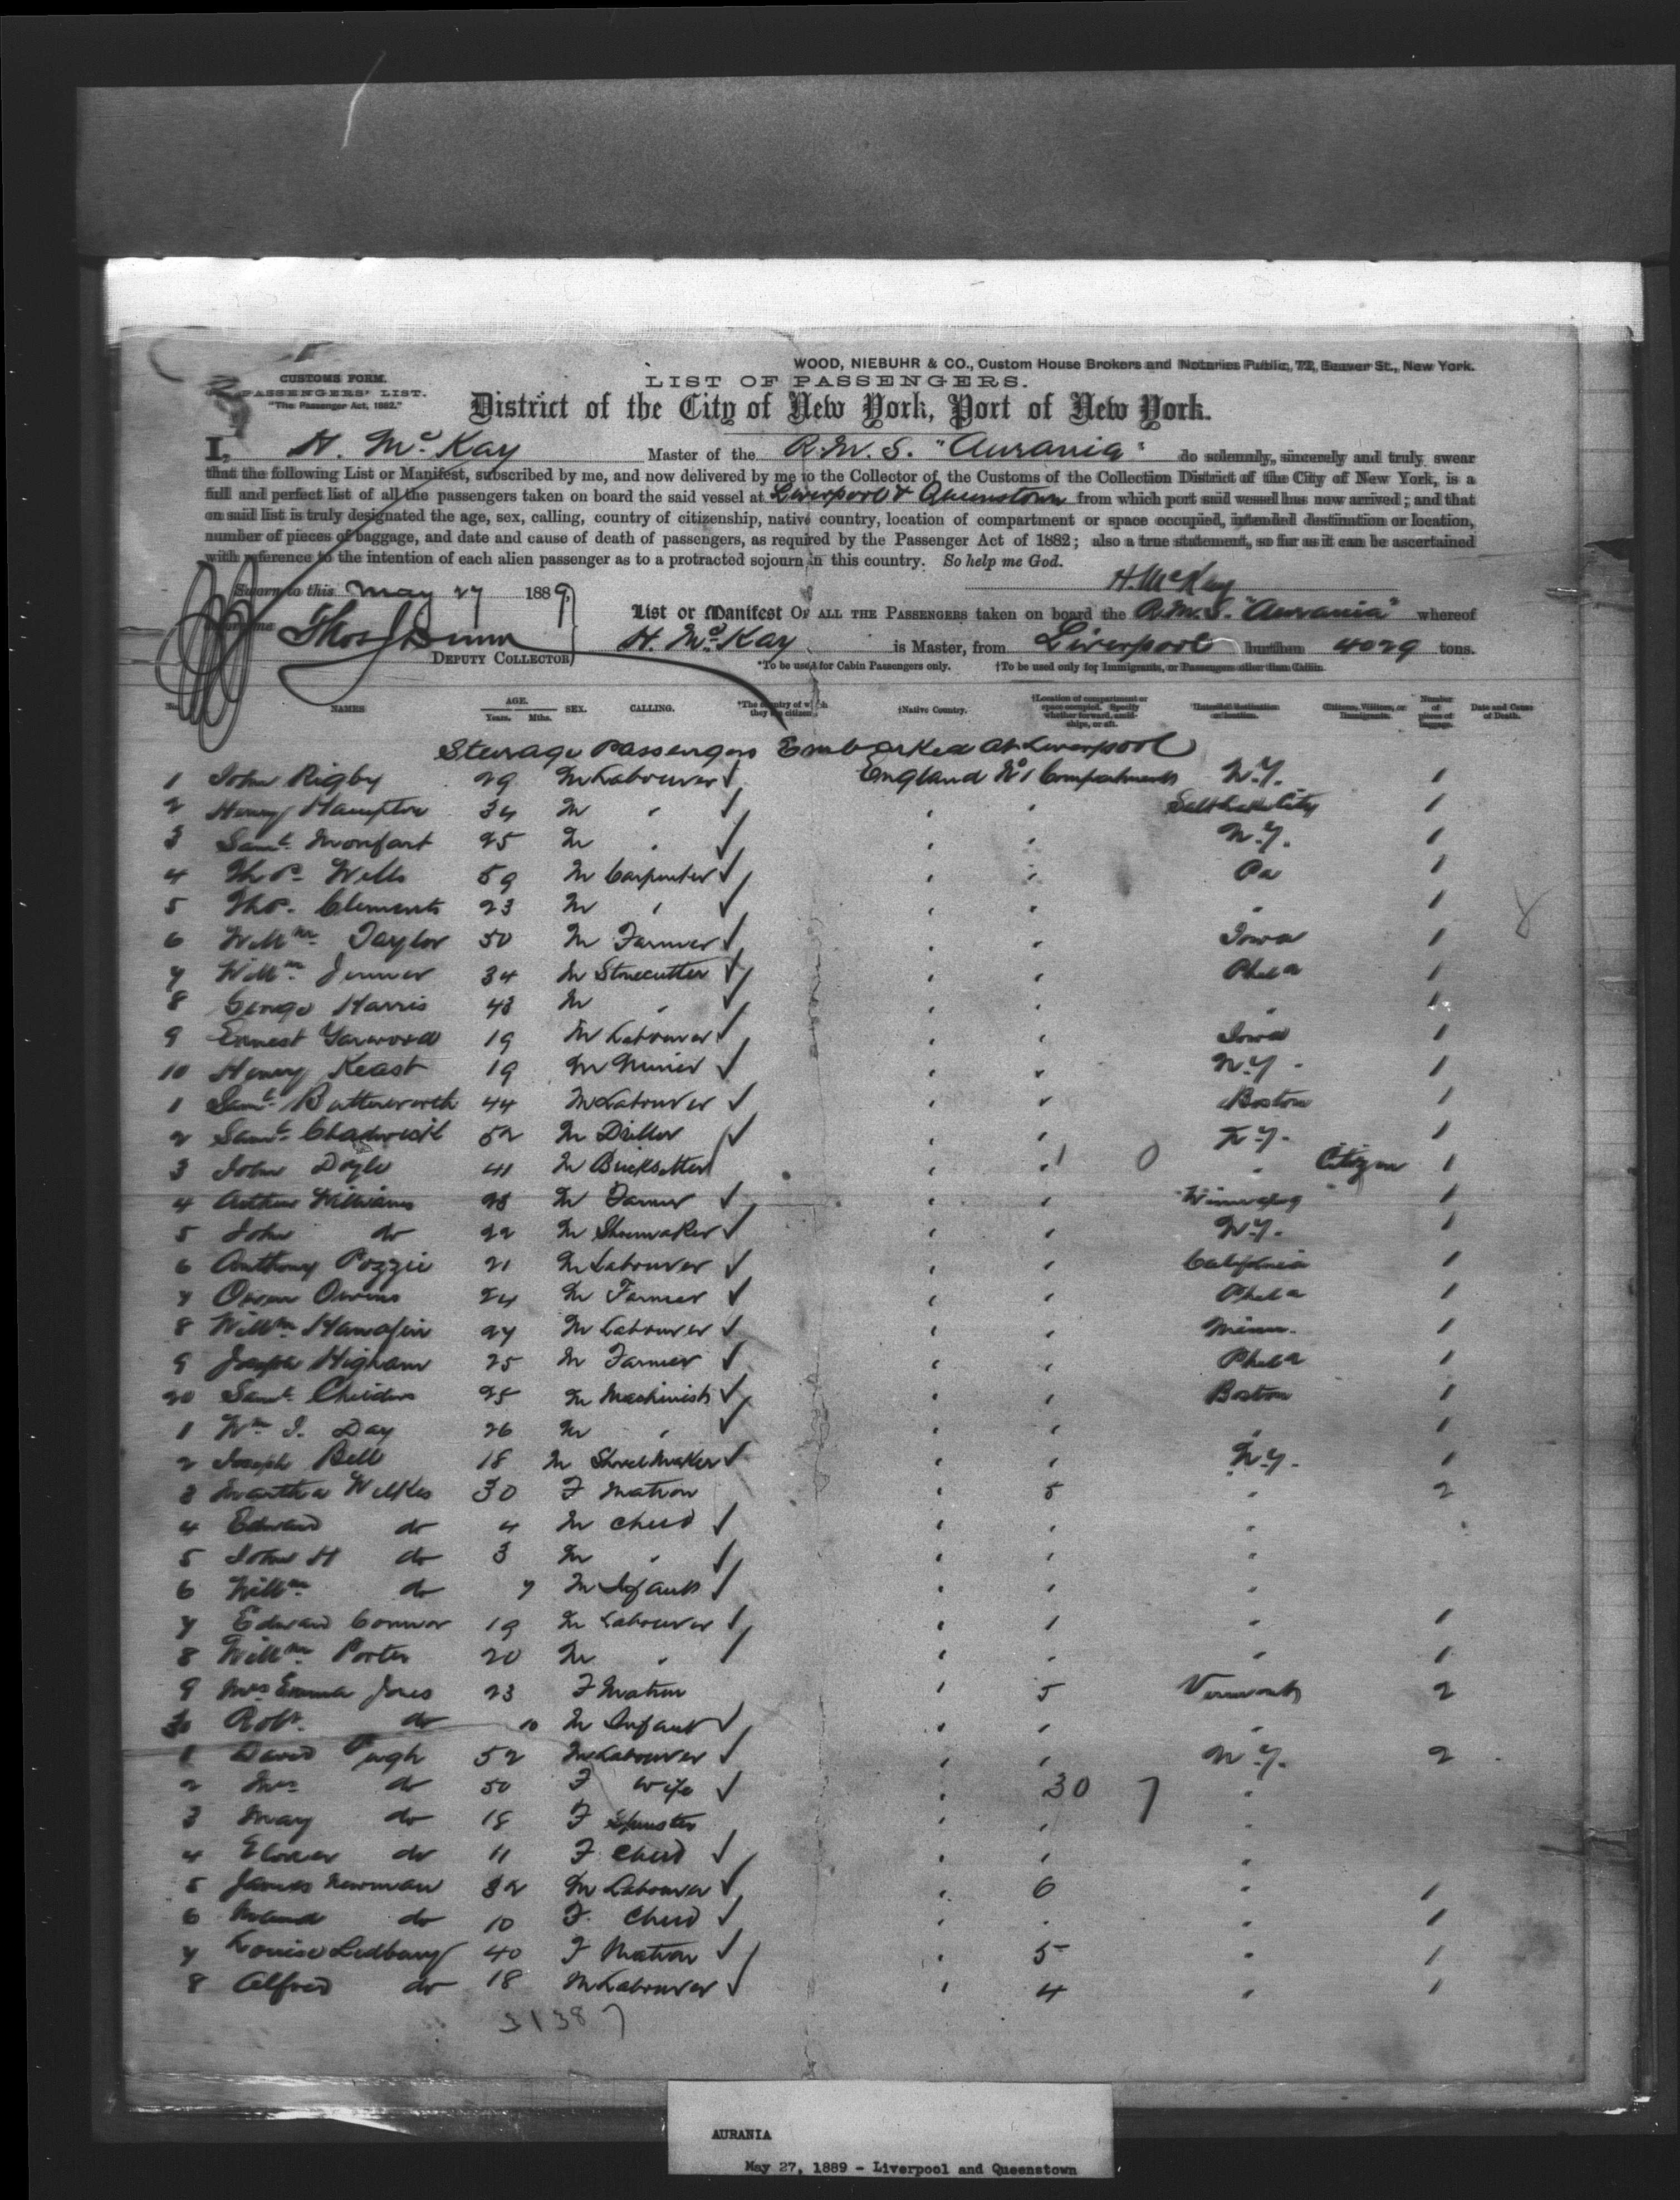 WOOD, NIEBUHR & CO., Custom House Brokers and Notaries Public, 72, Beaver St., New York.
CUSTOMS FORM.
PASSENGERS' LIST.
"The Passenger Act, 1882."
LIST OF PASSENGERS.
District of the City of New York, Port of New York.
I, H. McKay Master of the R.M.S. "Aurania" do solemnly, sincerely and truly swear
that the following List or Manifest, subscribed by me, and now delivered by me to the Collector of the Customs of the Collection District of the City of New York, is a
full and perfect list of all the passengers taken on board the said vessel at Liverpool & Queenstown from which port said vessel has now arrived; and that
on said list is truly designated the age, sex, calling, country of citizenship, native country, location of compartment or space occupied, intended destination or location,
number of pieces of baggage, and date and cause of death of passengers, as required by the Passenger Act of 1882; also a true statement, so far as it can be ascertained
with reference to the intention of each alien passenger as to a protracted sojourn in this country. So help me God.
H. McKay
Sworn to this May 27 1889,
Thos J Dunn
DEPUTY COLLECTOR
List or Manifest OF ALL THE PASSENGERS taken on board the R.M.S. "Aurania" whereof
H. McKay is Master, from Liverpool burthen 4029 tons.
*To be used for Cabin Passengers only. †To be used only for Immigrants, or Passengers other than Cabin.
NAMES AGE. Years. Mths. SEX. CALLING. *The country of which they are citizens †Native Country. †Location of compartment or space occupied. Specify whether forward, amidships, or aft. Intended destination or location. Citizens, Visitors, or Immigrants. Number of pieces of baggage. Date and Cause of Death.
Steerage Passengers Embarked at Liverpool
1 John Rigby 29 M Labourer ✓ England No 1 Compartment N.Y. 1
2 Henry Hampton 34 M " ✓ " " Salt Lake City 1
3 Saml. Monfart 25 M " ✓ " " N.Y. 1
4 Thos. Wells 59 M Carpenter ✓ " " Pa 1
5 Thos. Clements 23 M " ✓ " " " 1
6 Willm. Taylor 50 M Farmer ✓ " " Iowa 1
7 Willm. Jenner 34 M Stonecutter ✓ " " Phila 1
8 George Harris 43 M " ✓ " " " 1
9 Ernest Yarwood 19 M Labourer ✓ " " Iowa 1
10 Henry Keast 19 M Miner ✓ " " N.Y. 1
1 Saml. Butterworth 44 M Labourer ✓ " " Boston 1
2 Saml. Chadwick 52 M Driller ✓ " " N.Y. 1
3 John Doyle 41 M Bricksetter " " 1 0 " Citizen 1
4 Arthur Williams 28 M Farmer ✓ " " Winnipeg 1
5 John do 22 M Shoemaker ✓ " " N.Y. 1
6 Anthony Pozzie 21 M Labourer ✓ " " California 1
7 Owen Owens 24 M Farmer ✓ " " Phila 1
8 Willm 27 M Labourer ✓ " " Minn. 1
9 Joseph Higham 25 M Farmer ✓ " " Phila 1
20 Saml. 25 M Machinist ✓ " " Boston 1
1 Wm. J. Day 26 M " ✓ " " " 1
2 Joseph Bell 18 M Shovel Maker ✓ " " N.Y. 1
3 Martha Wilkes 30 F Matron " 5 " 2
4 Edward do 4 M Child ✓ " " "
5 John H do 3 M " ✓ " " "
6 Willm do 7 M Infant ✓ " " "
7 Edward Connor 19 M Labourer ✓ " 1 " 1
8 Willm Porter 20 M " ✓ " " " 1
9 Mrs Emma Jones 23 F Matron " 5 Vermont 2
30 Robt. do 10 M Infant ✓ " " "
1 David Pugh 52 M Labourer ✓ " " N.Y. 2
2 Mrs do 50 F Wife ✓ " 30 7 "
3 May do 18 F Spinster " " "
4 do 11 F Child ✓ " " "
5 James Newman 32 M Labourer ✓ " 6 " 1
6 Maud do 10 F. Child ✓ " " " 1
7 Louise Ledbury 40 F Matron ✓ " 5 " 1
8 Alfred do 18 M Labourer ✓ " 4 " 1
31387
AURANIA
May 27, 1889 - Liverpool and Queenstown